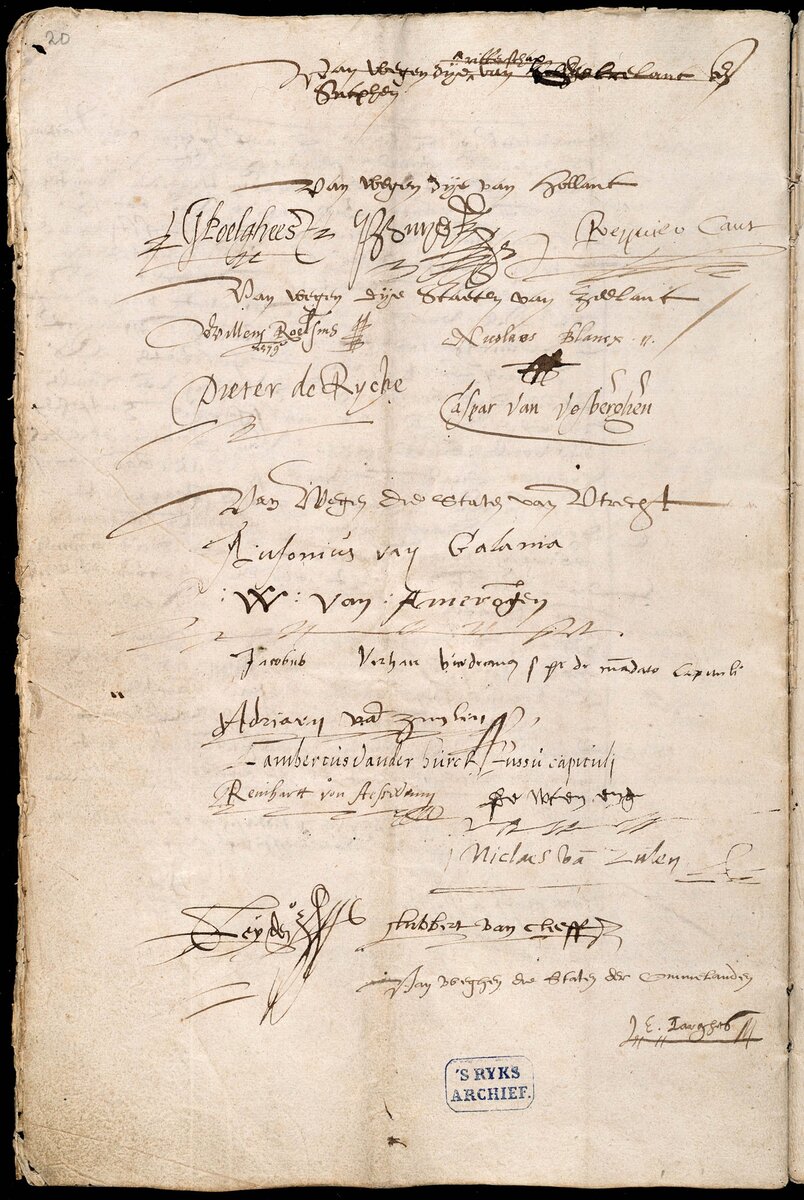 20
Van wegen dye van Ghelrelant
ritterschap
Sutphen
Van wegen dye van Hollant
GPoelgheest PBuys Reynier Cant
Van wegen dye Staeten van Zeelant
Willem Roelsius Nicolaes Blancx
1579
Pieter de Rycke Caspar van vosberghen
Van Wegen die Staten van Vtrecht
Ausonius van Galama
: W : van : Amerongen
Jacobus Verhaer vicedecanus de mandato capituli
Adriaen van Zuylen
Lambertus vander burch Jussu capituli
Reinhart von Aeswinn
Niclaes vā Zulen
Leyden Lubbert van cleeff
Van weghen die Staten der Ommelanden
E. Jarghes
'S RYKS
ARCHIEF.